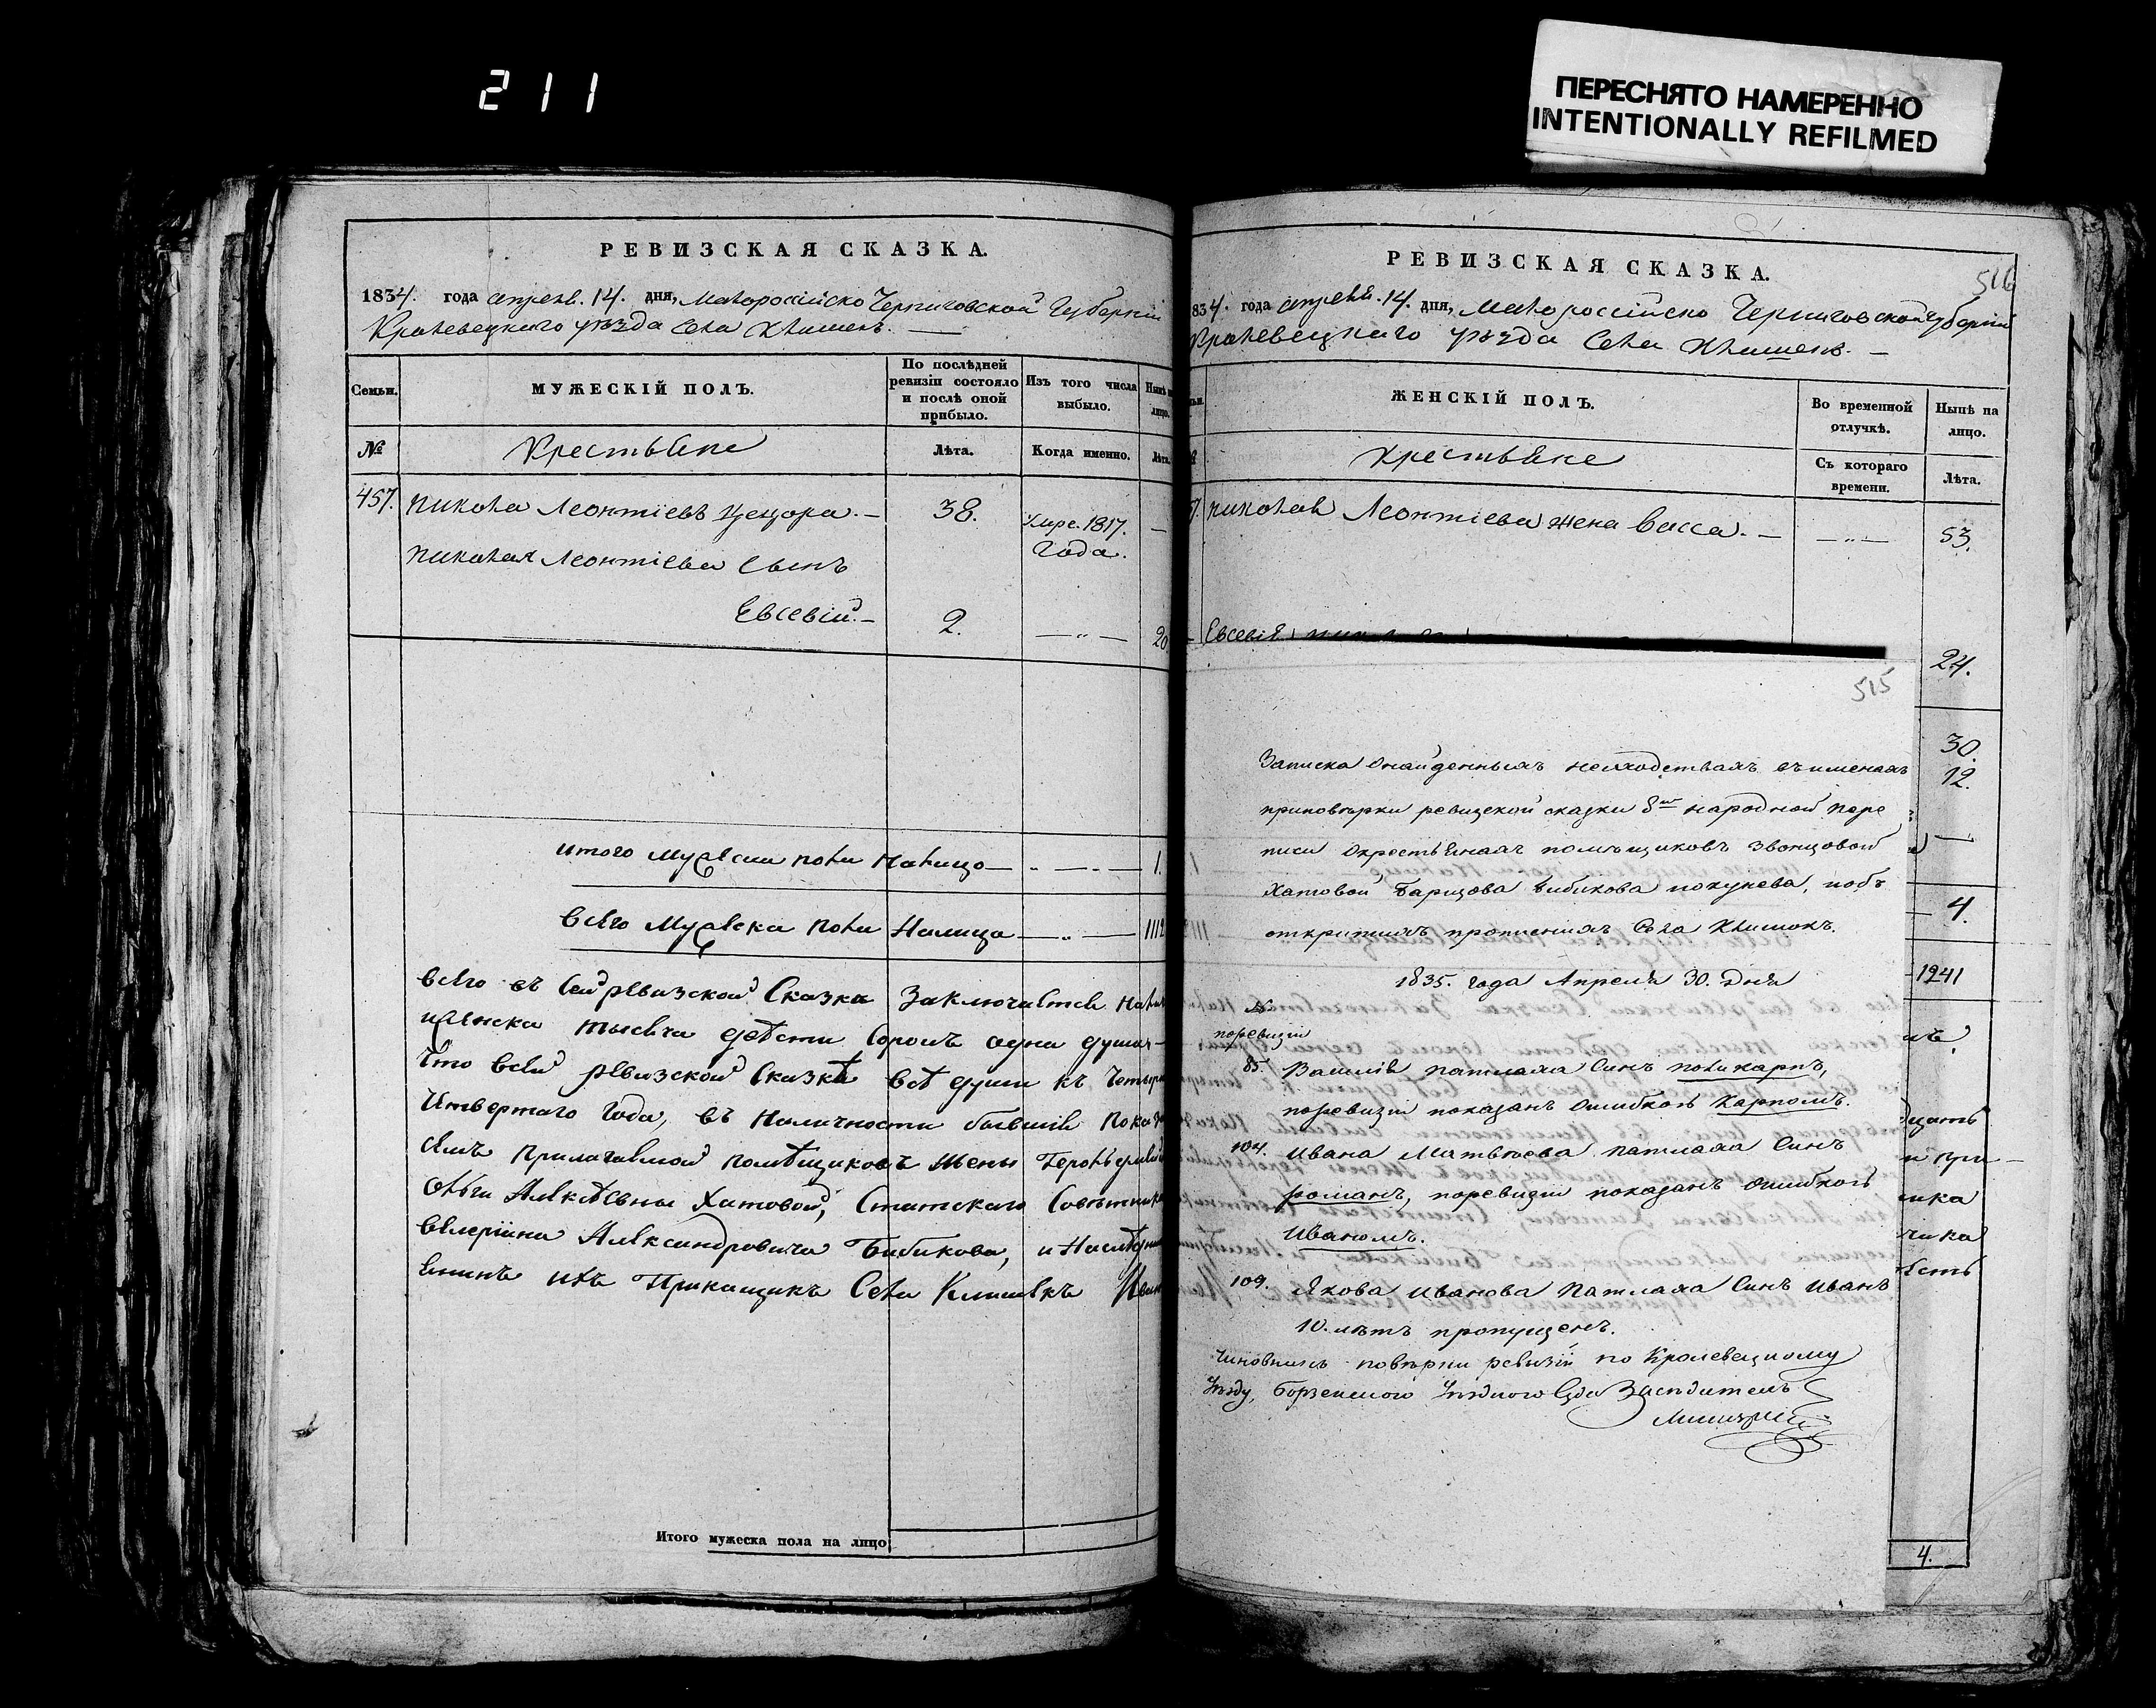 211
ПЕРЕСНЯТО НАМЕРЕННО
INTENTIONALLY REFILMED
РЕВИЗСКАЯ СКАЗКА.
1834. года апреля. 14. дня, Малоросійско Черниговской Губерніи
Кролевецкаго уѣзда Села Клишекъ.
Семьи.
МУЖЕСКІЙ ПОЛЪ.
По послѣдней ревизіи состояло и послѣ оной прибыло.
Изъ того числа выбыло.
Нынѣ на лицо.
№
Крестьяне
Лѣта.
Когда именно.
Лѣта.
457. Никола Леонтіевъ Цецора. — 38. умре. 1817. —
Года.
Николая Леонтіева сынъ
Евсевій. — 2. — „ — 20
Итого мужеска пола налицо — „ — „ — 1.
Всего мужеска пола налицо — „ — 1112
Всего въ сей ревизской сказке заключается
женска тысяча двѣсти сорокъ одна душа —
Что всей ревизской сказкѣ всѣ души къ
четвертаго года, въ наличности бывшіе
прилагаемой помѣщиковъ жены
Ольги Алексѣевны Хатовой, Статскаго Совѣтника
Валеріяна Александровича Бибикова, и
ихъ Прикащикъ Села Клишекъ
Итого мужеска пола на лицо
РЕВИЗСКАЯ СКАЗКА.
516
834. года апреля. 14. дня, Малоросійско Черниговской Губерніи
Кролевецкаго уѣзда Села Клишекъ. —
ЖЕНСКІЙ ПОЛЪ.
Во временной отлучкѣ.
Нынѣ на лицо.
Крестьяне
Съ котораго времени.
Лѣта.
7. Николая Леонтіева жена Васса. — — „ — 53.
Евсевія
24.
30.
12.
4.
1241
515
Записка онайденныхъ несходствахъ въ именахъ
приповѣрки ревизской сказки 8й народной пере
писи окрестьянахъ помѣщиковъ Звонцовой
Хатовой Барщова Бибикова покунева, поbъ
открытіяхъ Села Клишокъ.
1835. года Апреля 30. Дня
№
поревизіи
85. Василія патлаха Синъ поликарпъ,
поревизіи показанъ ошибкою Карпомъ.
104. Ивана Матвѣева патлаха Синъ
романъ, поревизіи показанъ ошибкой
Иваномъ.
109. Якова Иванова Патлаха Синъ Иванъ
10. лѣтъ пропущенъ.
Чиновникъ повѣрки ревизіи по Кролевецкому
уѣзду, Борзенского уѣзного Суда Заседитель
4.